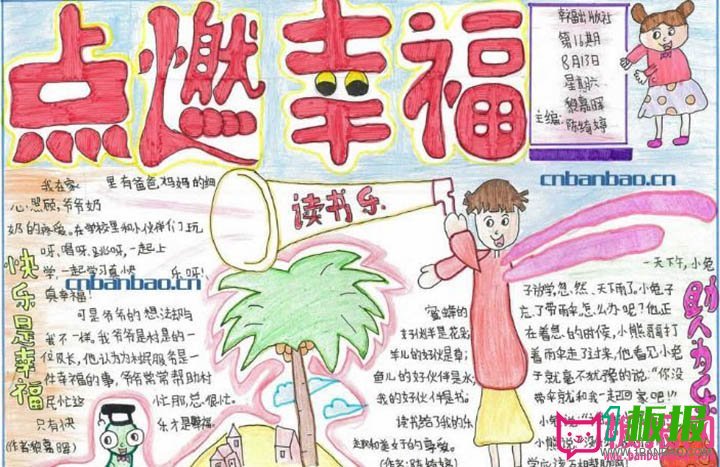 点燃幸福
幸福出版社
第16期
8月13日
星期六
主编:
cnbanbao.cn
读书乐
快乐是幸福
我在家 里有爸爸妈妈的细
心照顾,爷爷奶
奶的疼爱。在学校里和小伙伴们玩
呀、唱呀、跳呀,一起上
学,一起学习真快 乐呀!
真幸福!
cnbanbao.cn
可是爷爷的想法却与
我不一样。我爷爷是村里的一
位队长,他认为为村民服务是一
件幸福的事,爷爷常常帮助村
民忙这 忙那,总很忙。
只有快 乐才是幸福。
蜜蜂的
好伙伴是花朵
羊儿的好伙伴是草;
鱼儿的好伙伴是水,
我的好伙伴是书。
读书给了我的乐
助人为乐
一天下午,小兔
子放学,忽然,天下雨了,小兔子
忘了带雨伞怎么办呢?他正
在着急的时候,小熊
着雨伞走了过来,他看见小兔
子就毫不犹豫的说:"你没
带伞就和我一起回家吧!"
板报